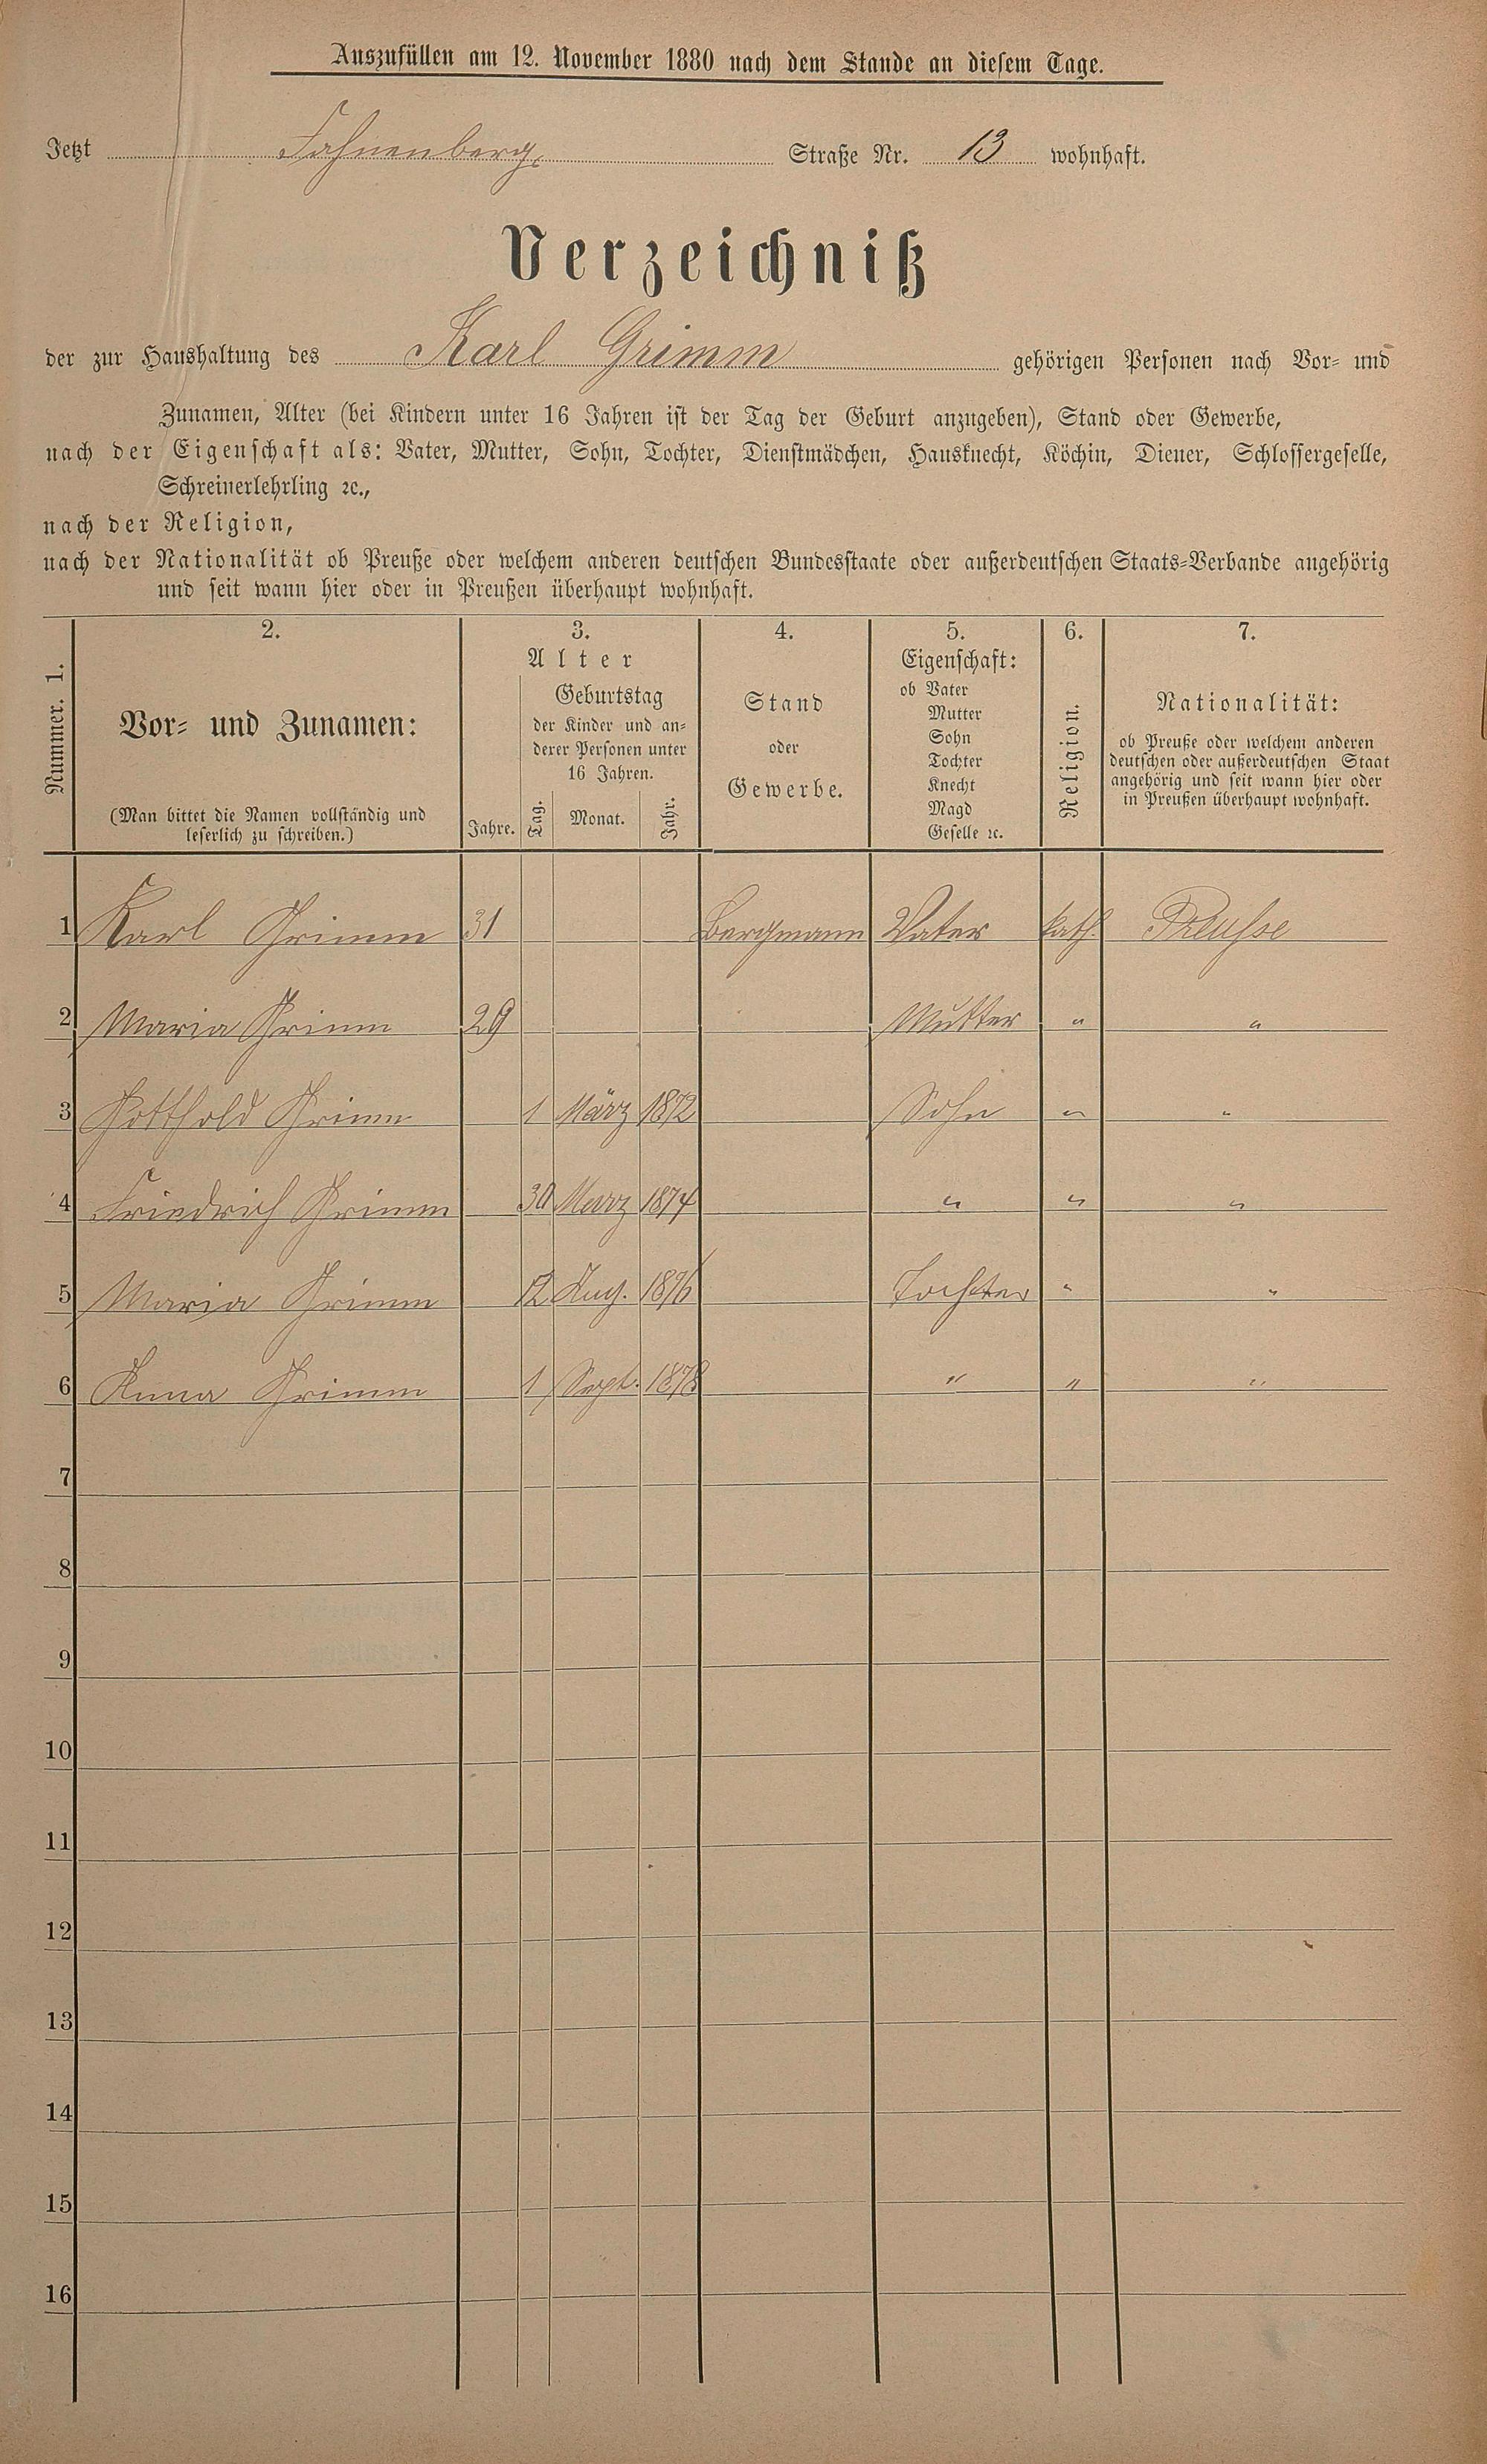 Auszufüllen am 12. November 1880 nach dem Stande an diesem Tage.
Jetzt Fahnenberg Straße Nr. 13 wohnhaft.
Verzeichniß
der zur Haushaltung des Karl Grimm gehörigen Personen nach Vor- und
Zunamen, Alter (bei Kindern unter 16 Jahren ist der Tag der Geburt anzugeben), Stand oder Gewerbe,
nach der Eigenschaft als: Vater, Mutter, Sohn, Tochter, Dienstmädchen, Hausknecht, Köchin, Diener, Schlossergeselle,
Schreinerlehrling ꝛc.,
nach der Religion,
nach der Nationalität ob Preuße oder welchem anderen deutschen Bundesstaate oder außerdeutschen Staats-Verbande angehörig
und seit wann hier oder in Preußen überhaupt wohnhaft.
Nummer. 1.
2.
Vor- und Zunamen:
(Man bittet die Namen vollständig und
leserlich zu schreiben.)
3.
Alter
Jahre.
Geburtstag
der Kinder und an-
derer Personen unter
16 Jahren.
Tag. Monat. Jahr.
4.
Stand
oder
Gewerbe.
5.
Eigenschaft:
ob Vater
Mutter
Sohn
Tochter
Knecht
Magd
Geselle ꝛc.
6.
Religion.
7.
Nationalität:
ob Preuße oder welchem anderen
deutschen oder außerdeutschen Staat
angehörig und seit wann hier oder
in Preußen überhaupt wohnhaft.
1 Karl Grimm 31 Bergmann Vater kath. Preusse
2 Maria Grimm 29 Mutter " "
3 Gotthold Grimm 1 März 1872 Sohn " "
4 Friedrich Grimm 30 Merz 1874 " " "
5 Maria Grimm 12 Aug. 1876 Tochter " "
6 Anna Grimm 1 Sept. 1878 " " "
7
8
9
10
11
12
13
14
15
16